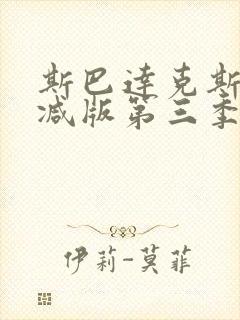 斯巴达克斯
减版第三季
伊莉-莫菲